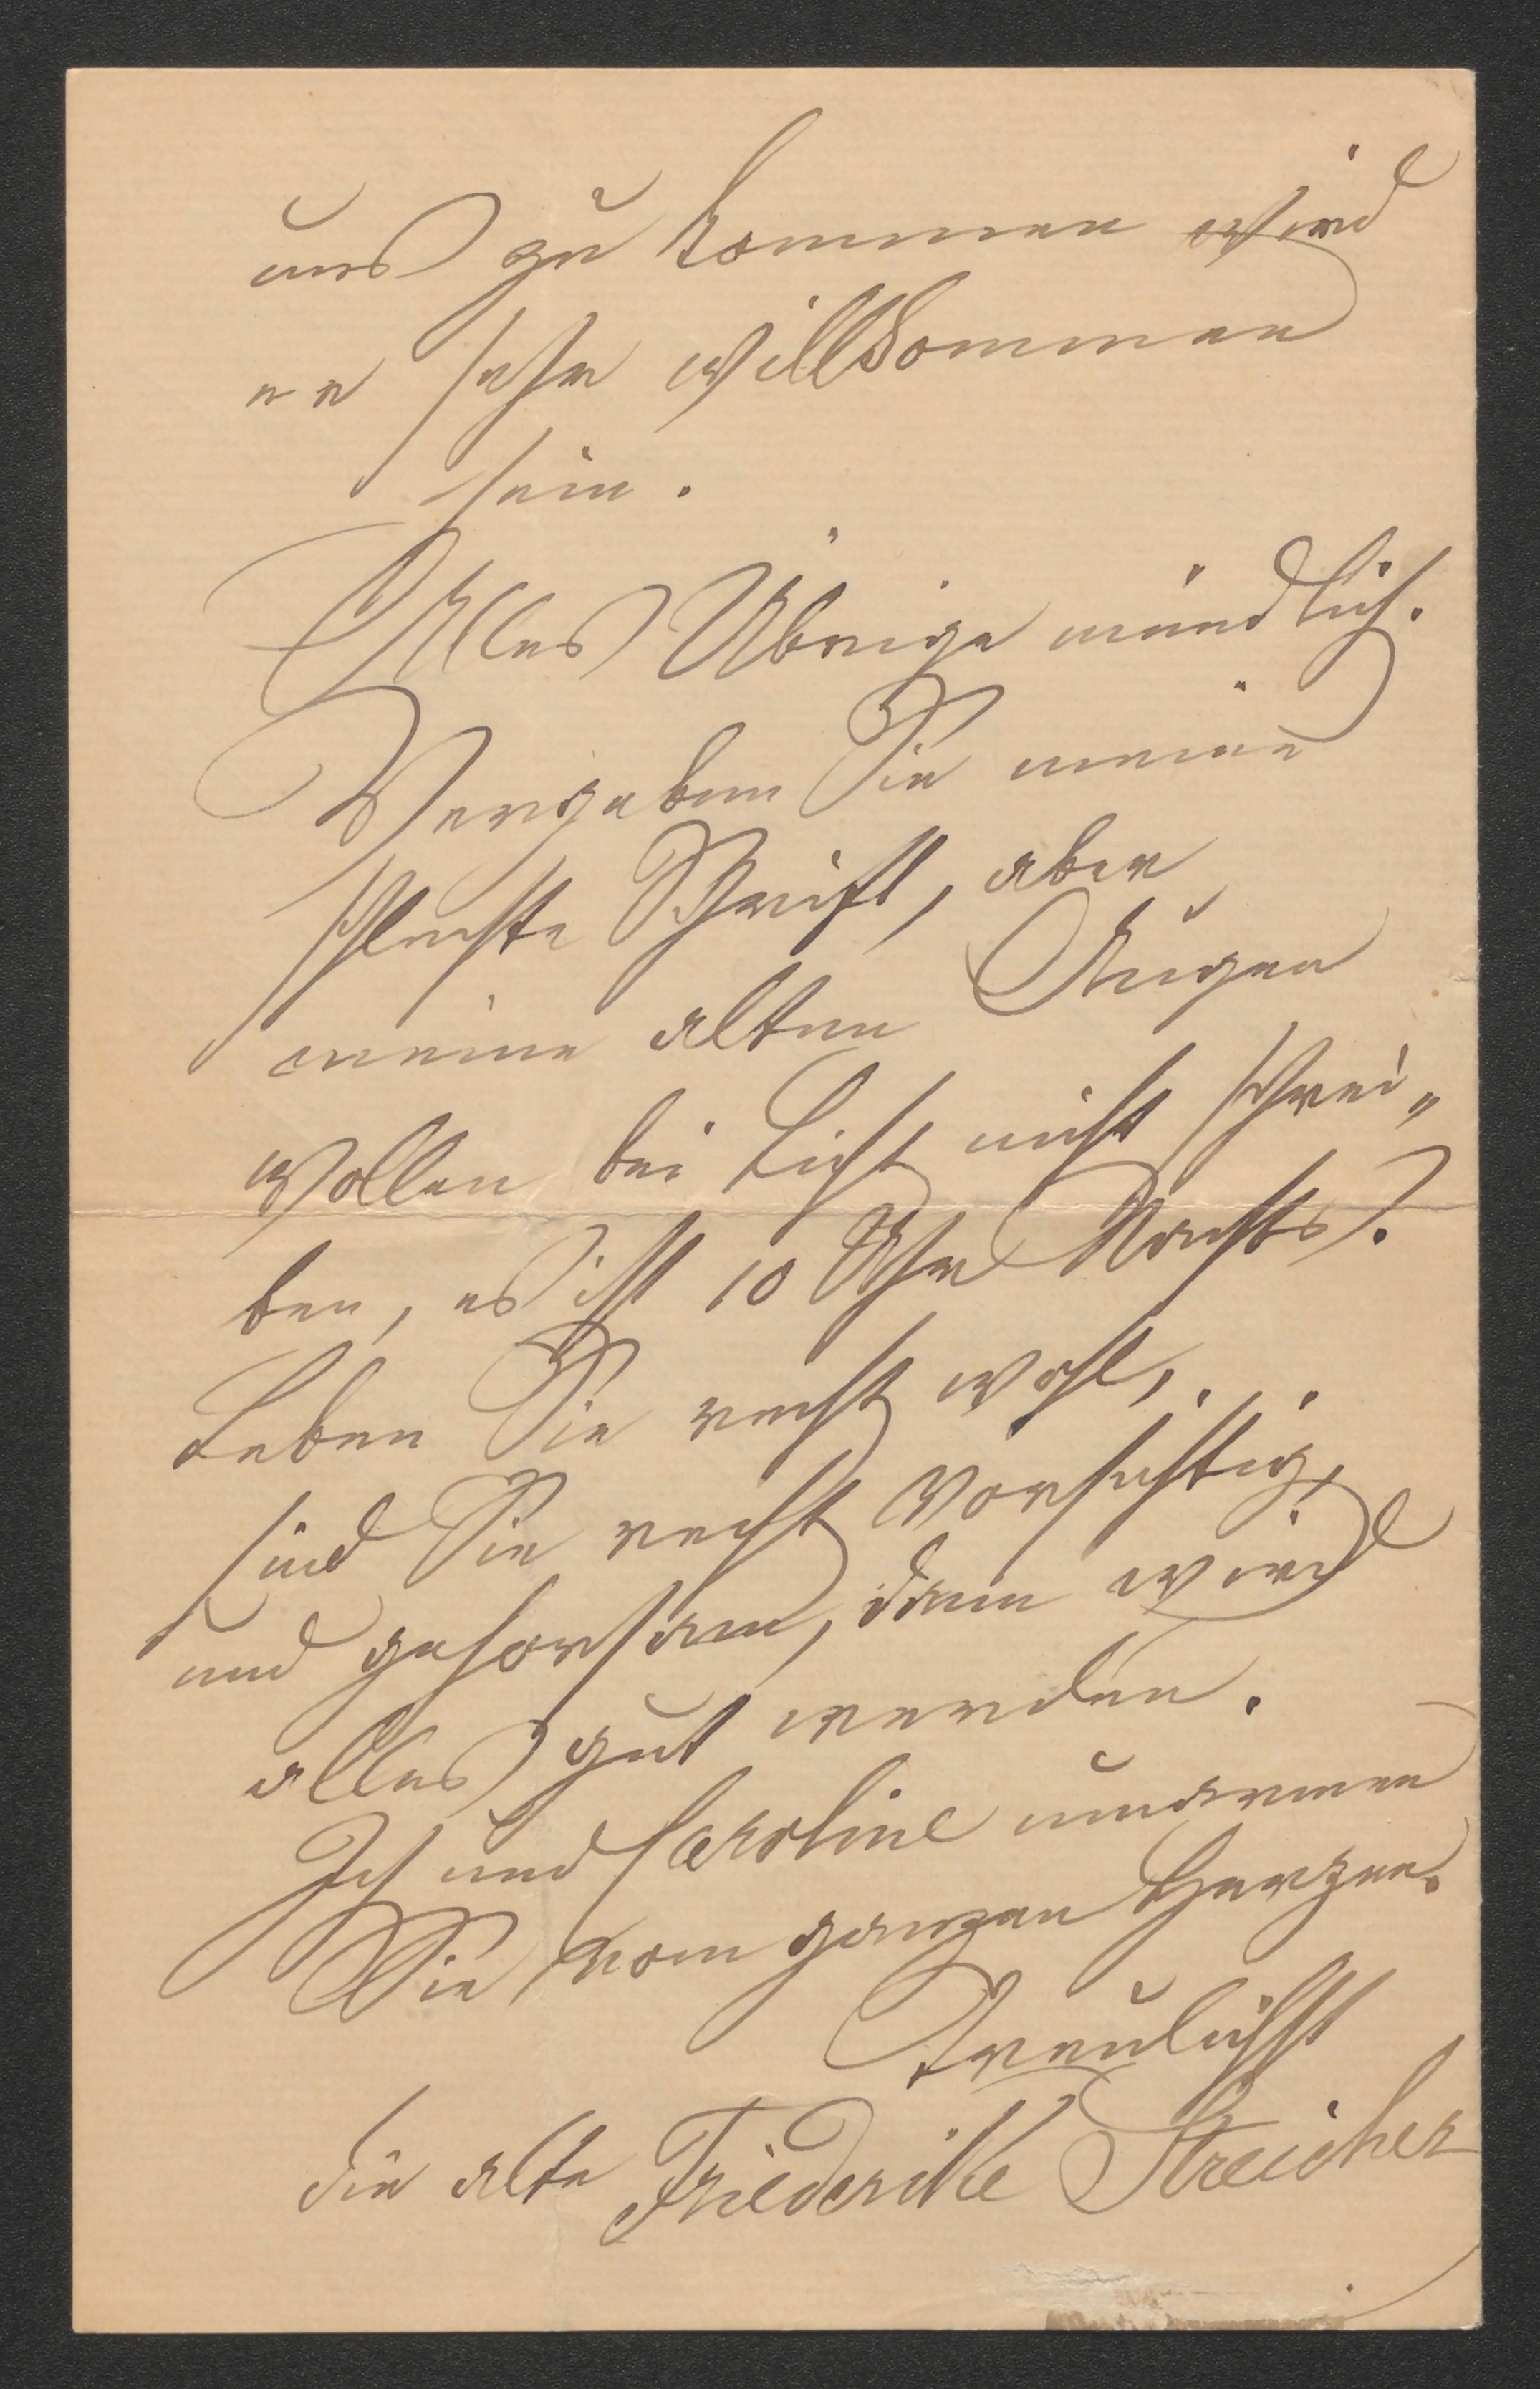 uns zu kommen wird
er sehr willkommen
sein.
Alles Übrige mündlich.
Vergeben Sie meine
schlechte Schrift, aber
meine alten Augen
wollen bei Licht nicht schrei„
ben, es ist 10 Uhr Nachts!
Leben Sie recht wohl,
sind Sie recht vorsichtig,
und gehorsam, dann wird
alles gut werden.
Ich und Caroline umarmen
Sie vom ganzen Herzen.
Treulichst
die alte Friederike Streicher